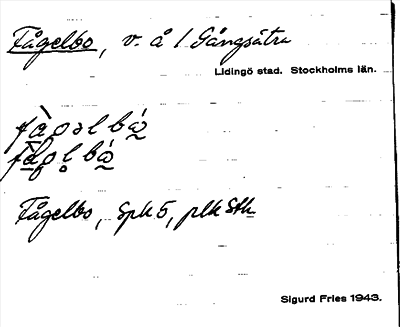 Fågelbo, v. å 1 Gångsätra
Lidingö stad. Stockholms län.
Fågelbo, Spk 5, plk Sth
Sigurd Fries 1943.